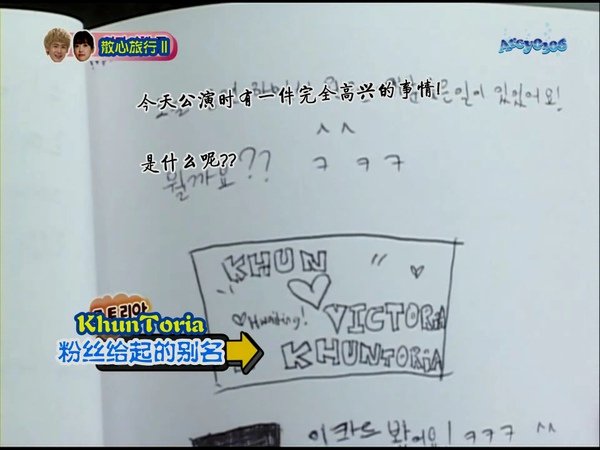 散心旅行 II
Assyc306
今天公演时有一件完全高兴的事情!
일이 있었어요!
^^
是什么呢??
뭘까요?? ㅋ ㅋㅋ
KHUN
♡
♡ Hwaiting! VICTORIA
KHUNTORIA
토리아
KhunToria
粉丝给起的别名
이 카드 봤어요! ㅋㅋㅋ ^^